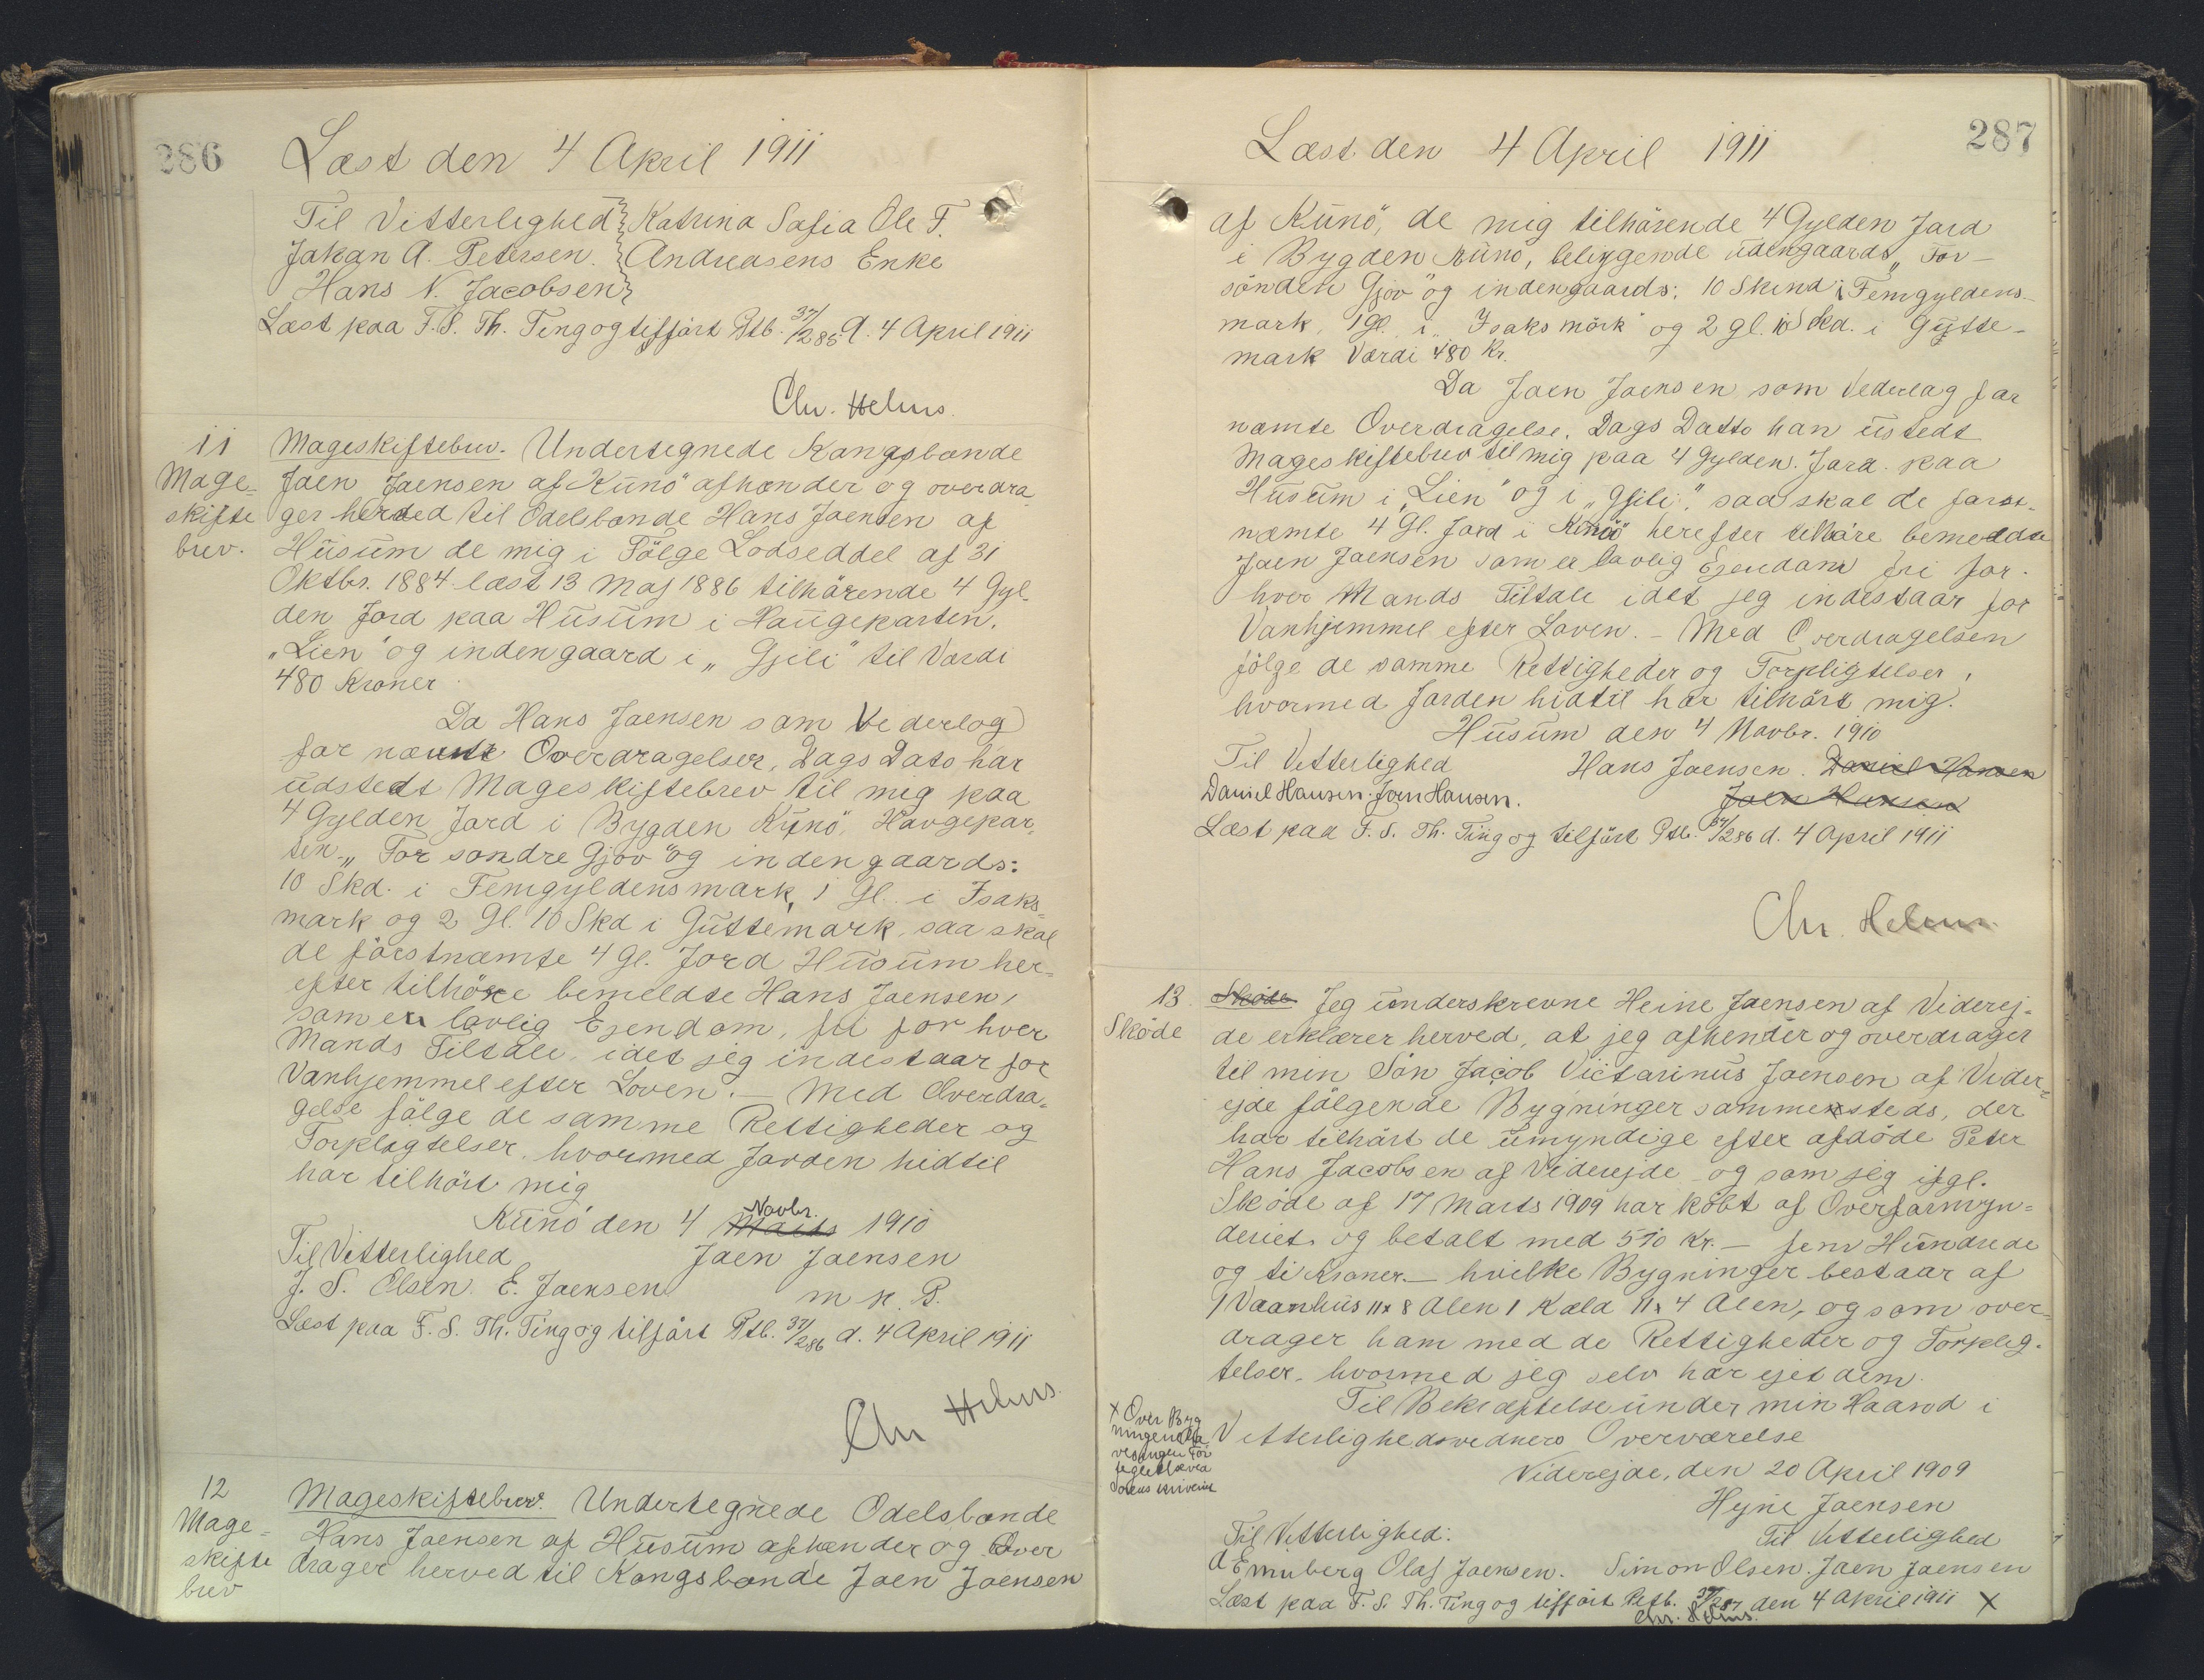 286
Læst den 4 April 1911
Til Vitterlighed Katrina Safia Ole F.
Jakan A. Petersen. Andreasens Enke
Hans N. Jacobsen
Læst paa F. S. Th. Ting og tilfört Ptb. 37/286 d. 4 April 1911
Chr. Helms.
11
Mage-
skifte
brev.
Mageskiftebrev. Undertegnede Kongsbonde
Joen Joensen af "Kunö" afhænder og overdra
ger herved til Odelsbonde Hans Joensen af
Husum de mig i Fölge Lodseddel af 31
Oktbr. 1884 læst 13 Maj 1886 tilhörende 4 Gyl-
den Jord paa Husum i Haugeparten.
"Lien" og indengaard i "Gjili" til Værdi
480 Kroner.
Da Hans Joensen som Vederlag
for nævnte Overdragelser, Dags Dato har
udstedt Mageskiftebrev til mig paa
4 Gylden Jord i Bygden Kunö, Havgepar-
ten "For sondre Gjov" og indengaards:
10 Skd. i Femgyldensmark, 1 Gl. i Isaks-
mark og 2 Gl. 10 Skd i Guttemark, saa skal
de förstnæmte 4 Gl. Jord Husum her-
efter tilhöre bemeldte Hans Joensen,
som en lovlig Ejendom, fri for hver
Mands Tiltale, idet jeg indestaar for
Vanhjemmel efter Loven. — Med Overdra-
gelse fölge de samme Rettigheder og
Forpligtelser, hvormed Jorden hidtil
har tilhört mig
Novbr.
Kunö den 4 Marts 1910
Til Vitterlighed Joen Joensen
J. S. Olsen. E. Joensen m. p. P.
Læst paa F. S. Th. Ting og tilfört Ptb. 37/286 d. 4 April 1911
Chr Helms.
12
Mage-
skifte
brev
Mageskiftebrev. Undertegnede Odelsbonde
Hans Joensen af Husum afhænder og Over
drager herved til Kongsbonde Joen Joensen
287
Læst den 4 April 1911
af Kunö, de mig tilhörende 4 Gylden Jord
i Bygden Kunö, beliggende udengaards "For-
sönden Gjov" og indengaards: 10 Skind i Femgyldens-
mark, 1 gl. i "Isaks mörk" og 2 gl. 10 Skd. i Gutte-
mark Værdi 480 Kr.
Da Joen Joensen som Vederlag for
næmte Overdragelse, Dags Datto han ustedt
Mageskiftebrev til mig paa 4 Gylden. Jord. paa
Husum i "Lien" og i "Gjili", saa skal de först-
næmte 4 Gl. Jord i Kunö herefter tilhöre bemeldte
Joen Joensen som er lovlig Ejendom fri for
hver Mands Tiltale idet jeg indestaar for
Vanhjemmel efter Loven. — Med Overdragelsen
fölge de samme Rettigheder og Forpligtelser,
hvormed Jorden hidtil har tilhört mig.
Husum den 4 Novbr. 1910
Til Vitterlighed Hans Joensen. Daniel Hansen
Daniel Hansen. Joen Hansen. Joen Hansen
Læst paa F. S. Th. Ting og tilfört Ptb. 37/286 d. 4 April 1911
Chr. Helms.
13.
Sköde
Sköde. Jeg underskrevne Heine Joensen af Viderej-
de erklærer herved, at jeg afhender og overdrager
til min Sön Jacob Victarinus Joensen af Vider-
ejde fölgende Bygninger sammensteds, der
har tilhört de umyndige efter afdöde Peter
Hans Jacobsen af Viderejde og som jeg ifgl.
Sköde af 17 Marts 1909 har köbt af Overformyn-
deriet og betalt med 510 Kr. — fem Hundrede
og ti Kroner — hvilke Bygninger bestaar af
1 Vaanhus 11 x 8 Alen 1 Kæld 11 x 4 Alen, og som over-
drager ham med de Rettigheder og Forplig-
telser, hvormed jeg selv har ejet dem.
Til Bekræftelse under min Haand i
Vitterlighedsvidners Overværelse
Viderejde, den 20 April 1909
Hejne Joensen
Til Vitterlighed: Til Vitterlighed
Eminberg Olaf Joensen. Simon Olsen. Joen Joensen
Læst paa F. S. Th. Ting og tilfört Ptb. 37/287 den 4 April 1911 x
Chr. Helms.
x Over Byg
ningen